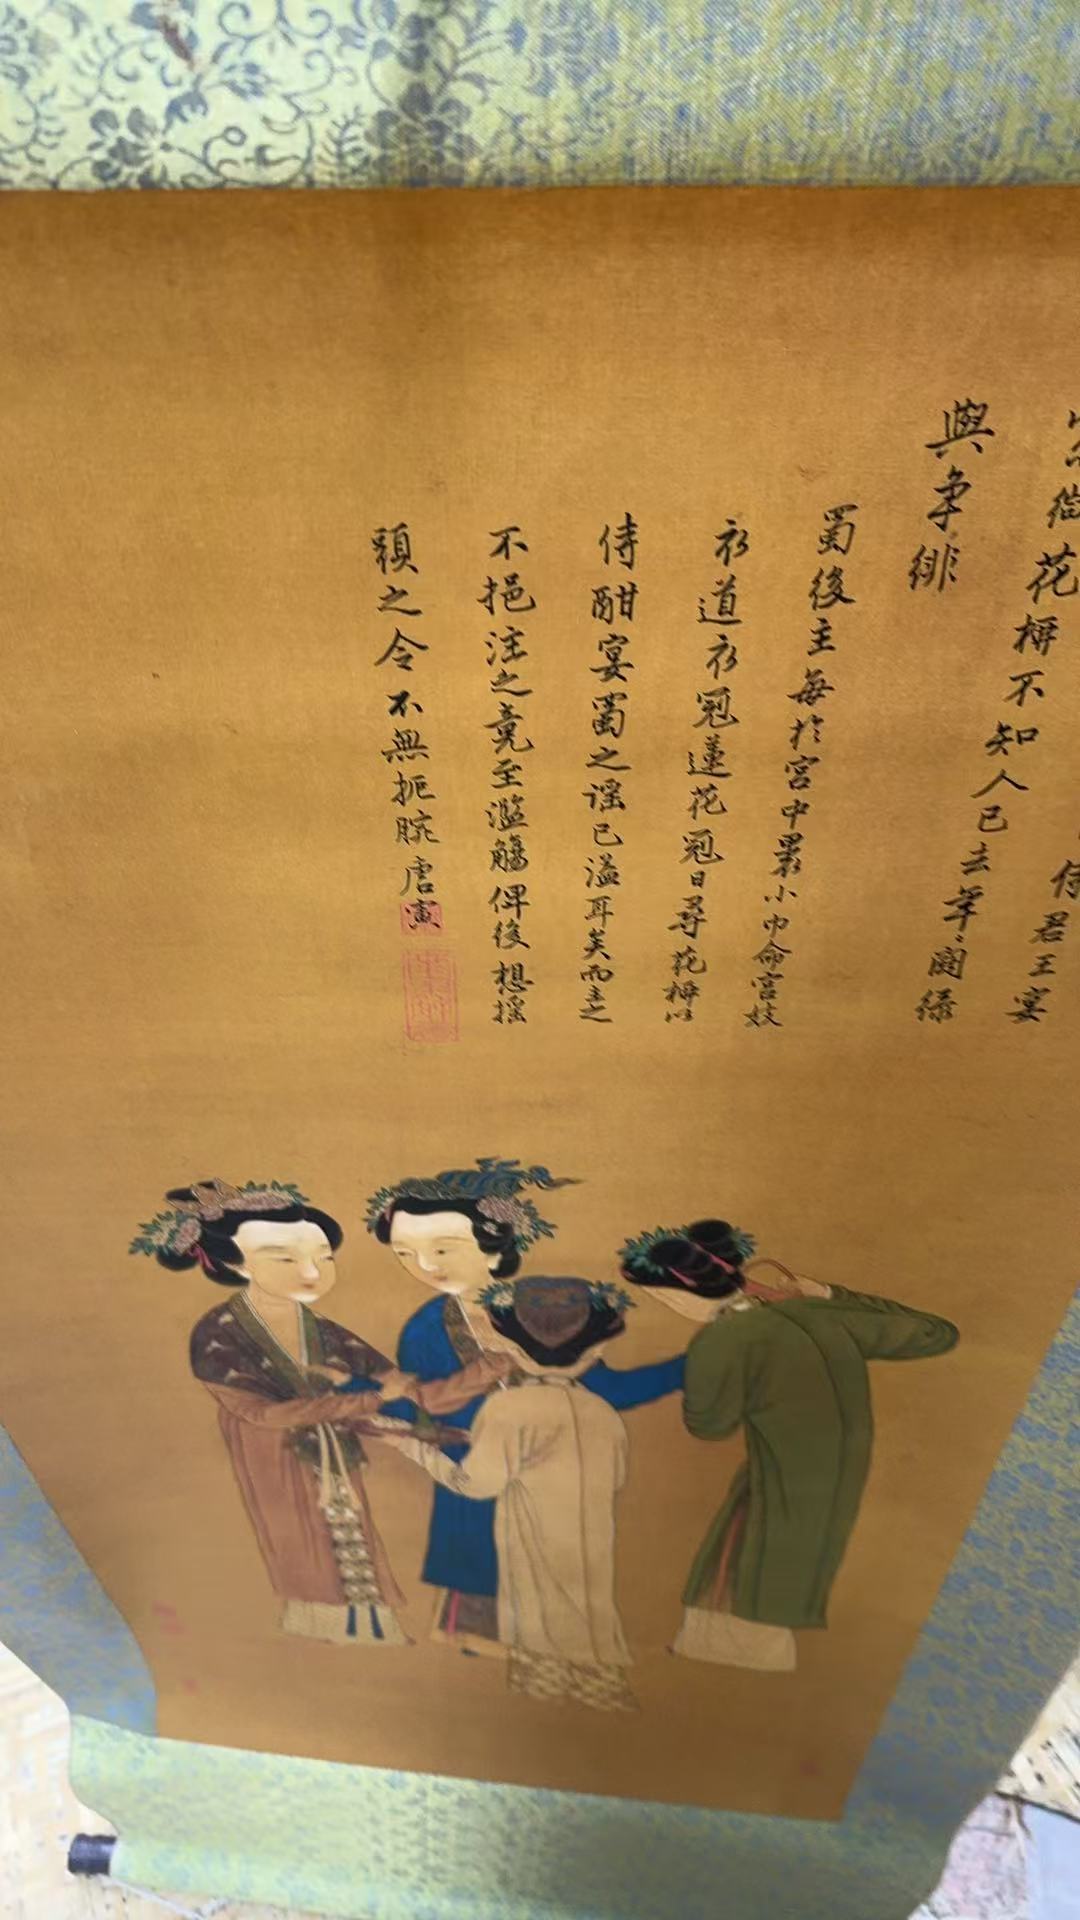 侍君王宴
花栁不知人已去年〻鬭緑
與争緋
蜀後主每於宮中裹小巾命宮妓
衣道衣冠蓮花冠日尋花栁以
侍酣宴蜀之謡已溢耳矣而主之
不挹注之竟至濫觴俾後想摇
頭之令不無扼腕唐寅